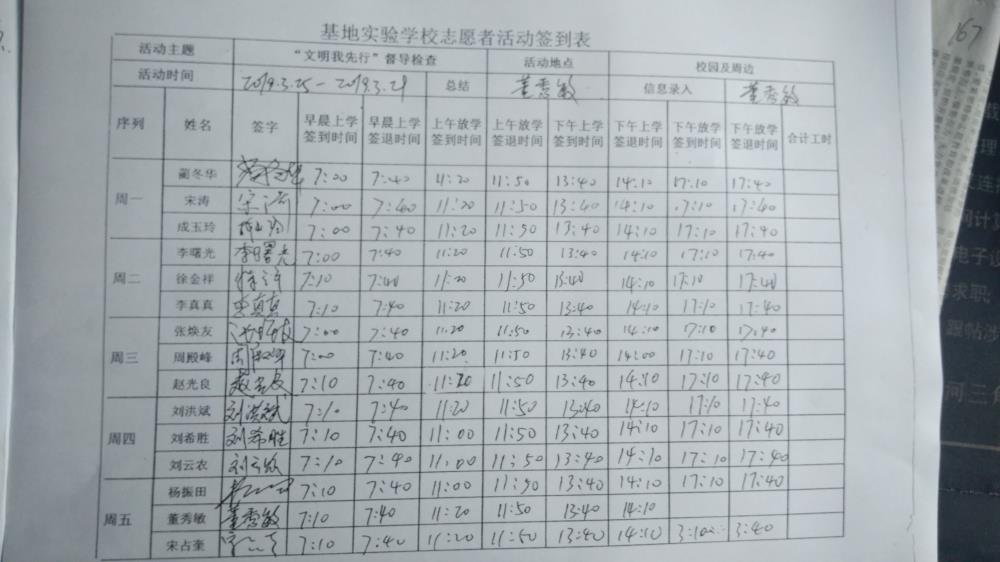 基地实验学校志愿者活动签到表
活动主题 “文明我先行”督导检查 活动地点 校园及周边
活动时间 2019.3.25-2019.3.29 总结 董秀敏 信息录入 董秀敏
序列 姓名 签字 早晨上学签到时间 早晨上学签退时间 上午放学签到时间 上午放学签退时间 下午上学签到时间 下午上学签退时间 下午放学签到时间 下午放学签退时间 合计工时
周一
蔺冬华 7:00 7:40 11:20 11:50 13:40 14:10 17:10 17:40
宋涛 宋涛 7:00 7:40 11:20 11:50 13:40 14:10 17:10 17:40
成玉玲 7:00 7:40 11:20 11:50 13:40 14:10 17:10 17:40
周二
李曙光 李曙光 7:00 7:40 11:20 11:50 13:40 14:10 17:10 17:40
徐金祥 7:10 7:40 11:20 11:50 13:40 14:10 17:10 17:40
李真真 李真真 7:10 7:40 11:20 11:50 13:40 14:10 17:10 17:40
周三
张焕友 7:00 7:40 11:20 11:50 13:40 14:10 17:10 17:40
周殿峰 7:00 7:40 11:20 11:50 13:40 14:00 17:10 17:40
赵光良 赵光良 7:10 7:40 11:20 11:50 13:40 14:10 17:10 17:40
周四
刘洪斌 刘洪斌 7:10 7:40 11:20 11:50 13:40 14:10 17:10 17:40
刘希胜 刘希胜 7:10 7:40 11:00 11:50 13:40 14:10 17:10 17:40
刘云农 刘云农 7:10 7:40 11:00 11:50 13:40 14:10 17:10 17:40
周五
杨振田 7:10 7:40 11:00 11:50 13:40 14:10 17:10 17:40
董秀敏 董秀敏 7:10 7:40 11:20 11:50 13:40 14:10
宋占奎 7:10 7:40 11:20 11:50 13:40 14:10 3:10 3:40
167
电子设
求职
跟帖涉
河三角